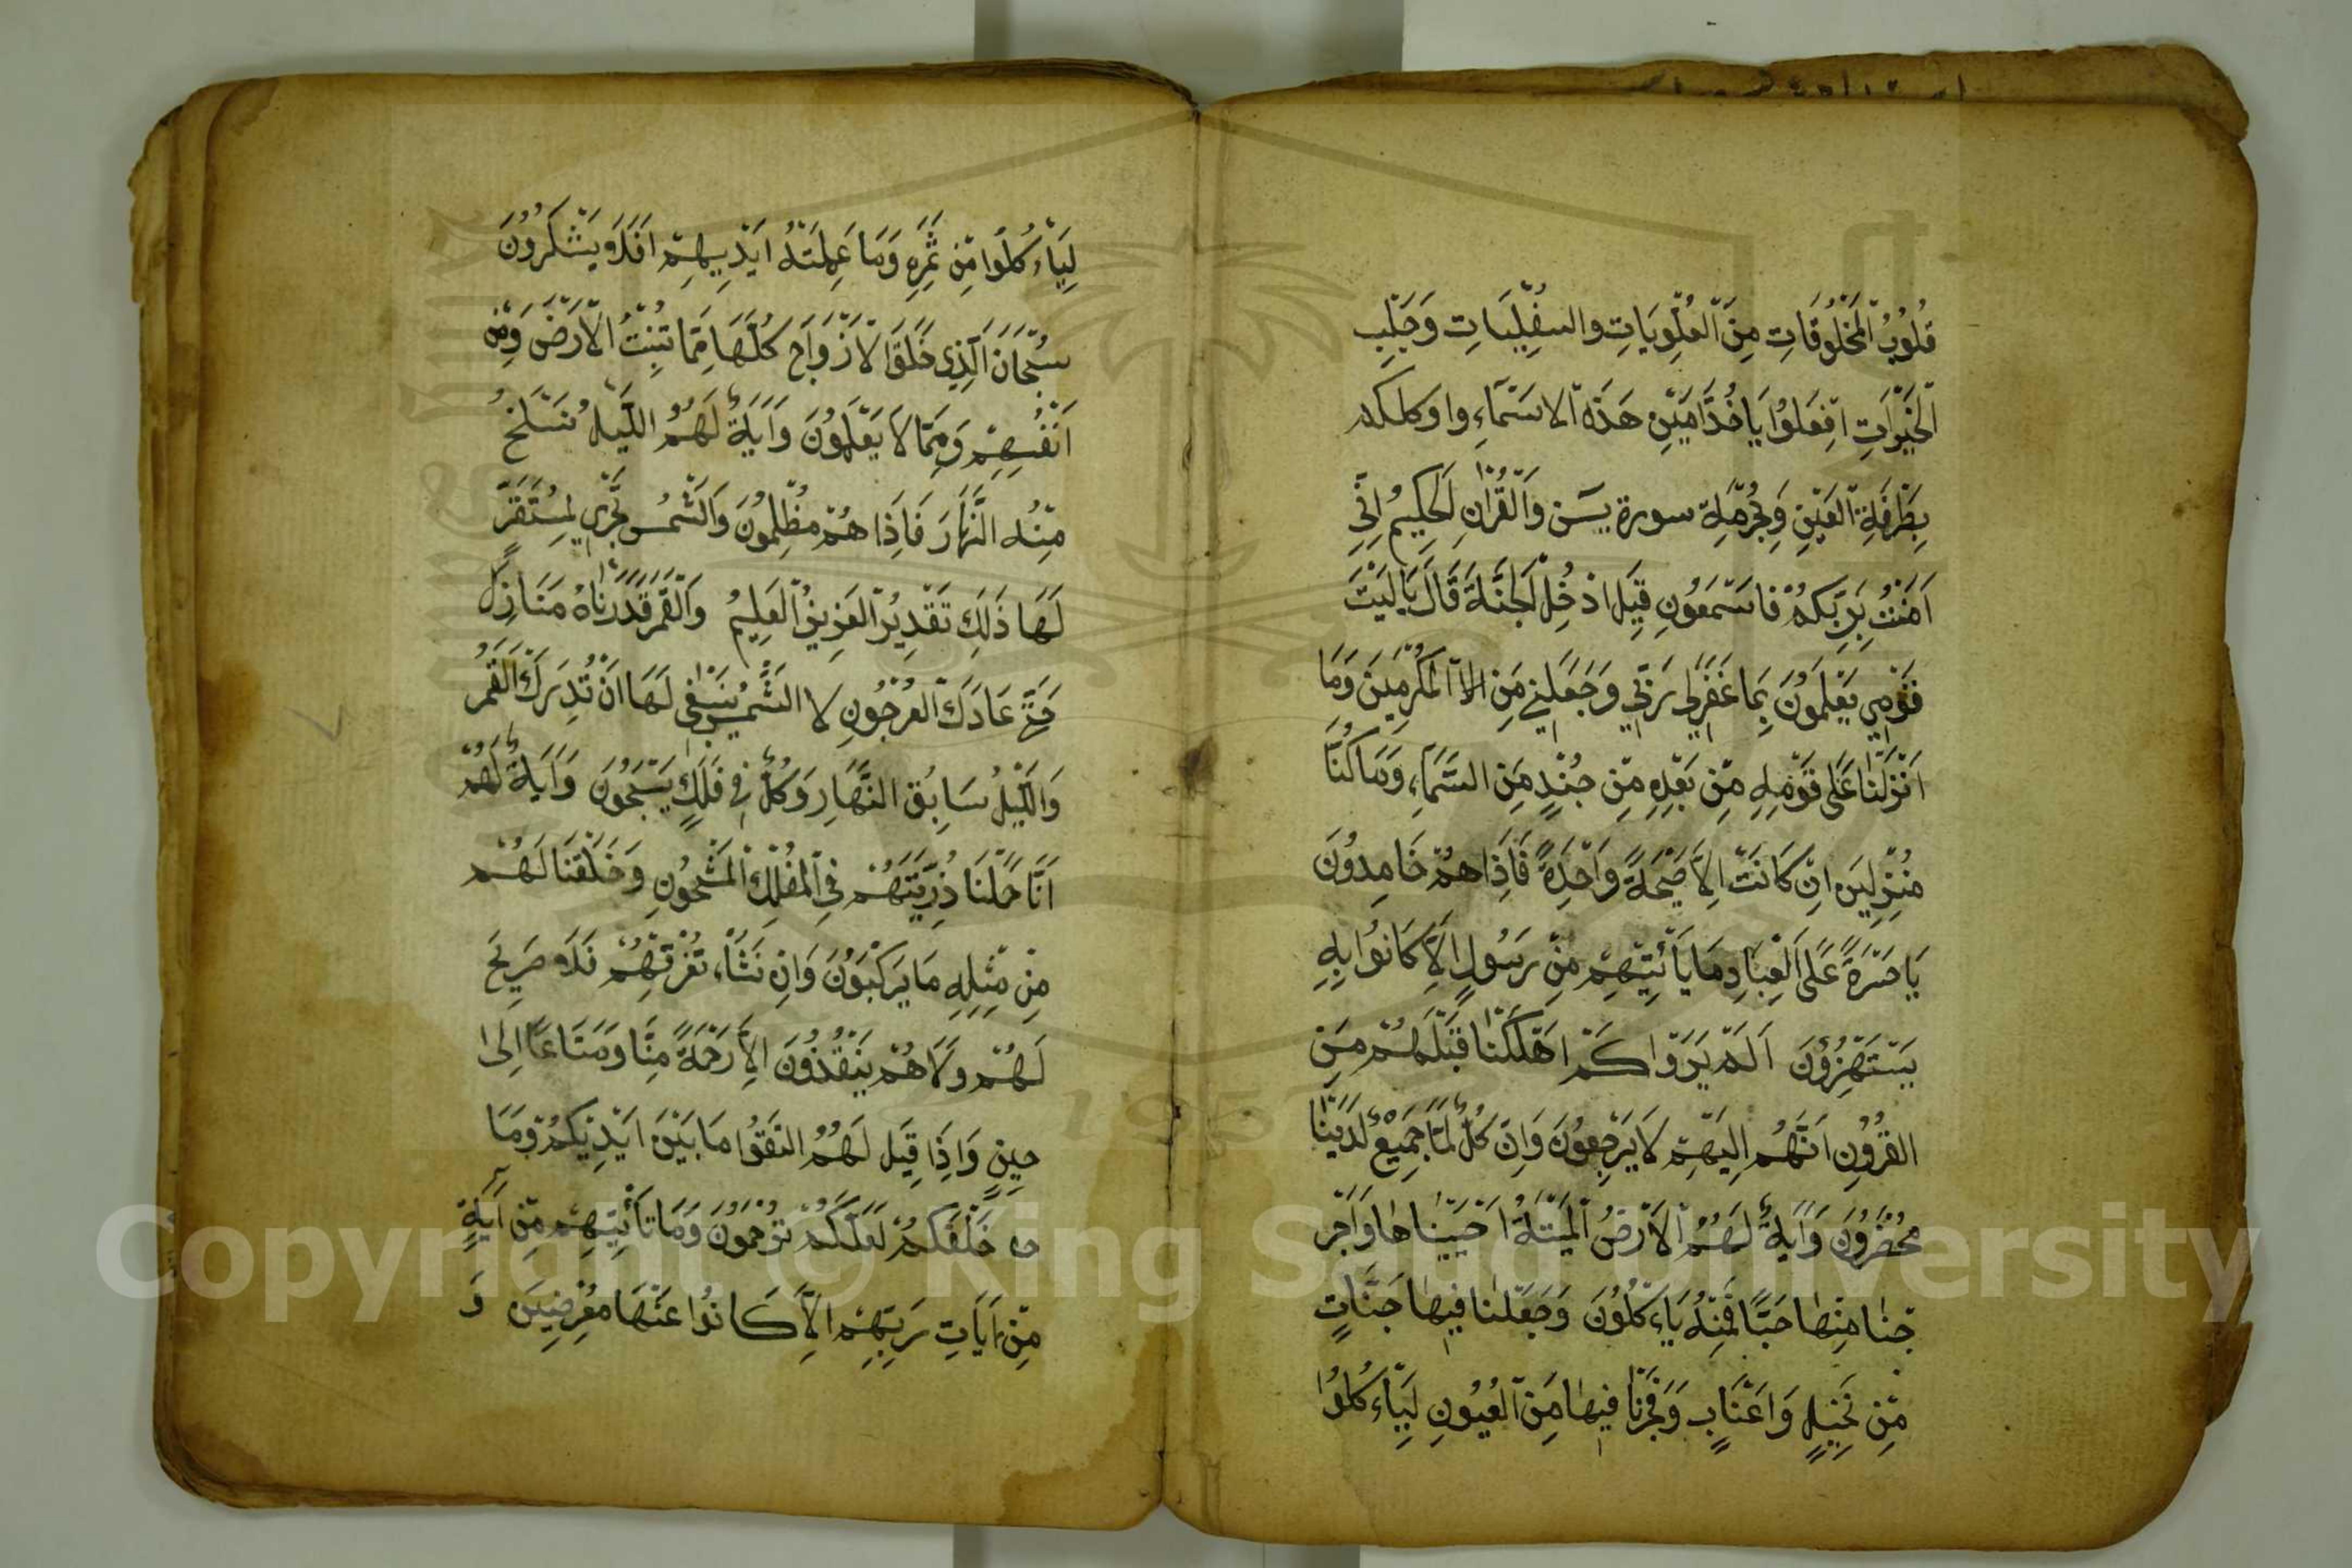 قُلُوْبُ الْمَخْلُوْقَاتِ مِنَ الْعُلْوِيَاتِ والسُفْلِيَاتِ وَجَلْبِ
الْخَيْرَاتِ اِفْعَلُوْا يَاخُدَّامَيْنِ هَذِهْ الاسَمْآءِ واوكلكم
بِطَرْفَةِ الْعَيْنِ وَبِحُرْمَةِ سورة يسَن وَالْقُرْاٰنِ الْحَكِيْمُ اِنِّيْ
اَمَنْتُ بِرَبِّكُمْ فاسْمَعُوْنِ قِيْلَ ادْخُلْ الْجَنَّةَ قَالَ يَالَيْتَ
قَوْمِيْ يَعْلَمُوْنَ بِمَا غَفَرَلِي رَبِّيْ وَجَعَلَنِيْ مَنِ الاْ الْمُكْرَمِيْنَ وَمَا
اَنْزَلْنَا عَلَى قَوْمِهِ مِنْ بَعْدِهِ مِنْ جُنْدٍ مِنَ السَّمَاءِ، وَمَا كُنَّا
مُنْزِلِيْنَ اِنْ كَانَتْ اِلاَّ صَيْحَةً وَاحْدَةً فَاِذَا هُمْ خَامِدُوْنَ
يَاحَسْرَةً عَلَى الْعِبَادِ مَا يَاْتِيْهِمْ مِنْ رَسُوْلٍ اِلاَّ كَانُوْا بِهِ
يَسْتَهْزِؤُنَ اَلَمْ يَرَوْا كَمْ اَهْلَكْنَا قَبْلَهُمْ مِنَ
القُرُوْنِ اَنَّهُمْ اِلَيْهِمْ لاَ يَرْجِعُوْنَ وَاِنْ كُلٌّ لَمَّا جَمِيْعٌ لَدَيْنَا
مُحْضَرُوْنَ وَاَيَةٌ لَهُمُ الاَرْضُ الْمَيْتَةُ اَحْيَيْنَاهَا وَاَخْرَ
جْنَا مِنْهَا حَبًّا فَمِنْهُ يَاءْكُلُوْنَ وَجَعَلْنَا فِيْهَا جَنَّاتٍ
مِنْ نَخِيْلٍ وَاَعْنَابٍ وَفَجَّرْنَا فِيْهَا مِنَ الْعُيُوْنِ لِيَاءْكُلُوْا
لِيَاءْكُلُوْا مِنْ ثَمَرِهِ وَمَا عَمِلَتْهُ اَيْدِيهِمْ اَفَلاَ يَشْكُرُوْنَ
سُبْحَانَ الَّذِي خَلَقَ الاَزْوَاجَ كُلَّهَا مِمَّا تُنْبِتُ الاَرْضُ وَمِنْ
اَنْفُسِهِمْ وَمِمَّا لاَ يَعْلَمُوْنَ وَاَيَةٌ لَهُمُ اللَّيْلُ نَسْلَخُ
مِنْهُ النَّهَارَ فَاِذَا هُمْ مُظْلِمُوْنَ وَالشَّمْسُ تَجْرِيْ لِمُسْتَقَرٍّ
لَهَا ذَلِكَ تَقْدِيْرُ الْعَزِيْزِ الْعَلِيْمُ وَالْقَمَرَ قَدَّرْنَاهُ مَنَازِلَ
حَتَّى عَادَكَ الْعُرْجُوْنِ لا الشَّمْسُ يَنْبَغِي لَهَا اَنْ تُدْرِكَ الْقَمَرَ
وَالَّيْلُ سَابِقُ النَّهَارِ وَكُلٌّ فِي فَلَكٍ يَسْبَحُوْنَ وَاَيَةٌ لَهُمْ
اَنَّا حَمَلْنَا ذُرِّيَّتَهُمْ فِي الْفُلْكِ الْمَشْحُوْنِ وَخَلَقْنَا لَهُمْ
مِنْ مِثْلِهِ مَا يَرْكَبُوْنَ وَاِنْ نَشَاْءْ، نُغْرِقْهُمْ فَلاَ صَرِيْخَ
لَهُمْ وَلاَ هُمْ يُنْقَذُوْنَ اِلاَّ رَحْمَةً مِنَّا وَمَتَاعًا اِلَىٰ
حِيْنٍ وَاِذَا قِيْلَ لَهُمُ اتَّقُوْا مَا بَيْنَ اَيْدِيْكُمْ وَمَا
خَلْفَكُمْ لَعَلَّكُمْ تُرْحَمُوْنَ وَمَا تَاْتِيْهِمْ مِنْ آيَةٍ
مِنْ اَيَاتِ رَبِّهِمْ اِلاَّ كَانُوْا عَنْهَا مُعْرِضِيْنَ وَ
Copyright © King Saud University